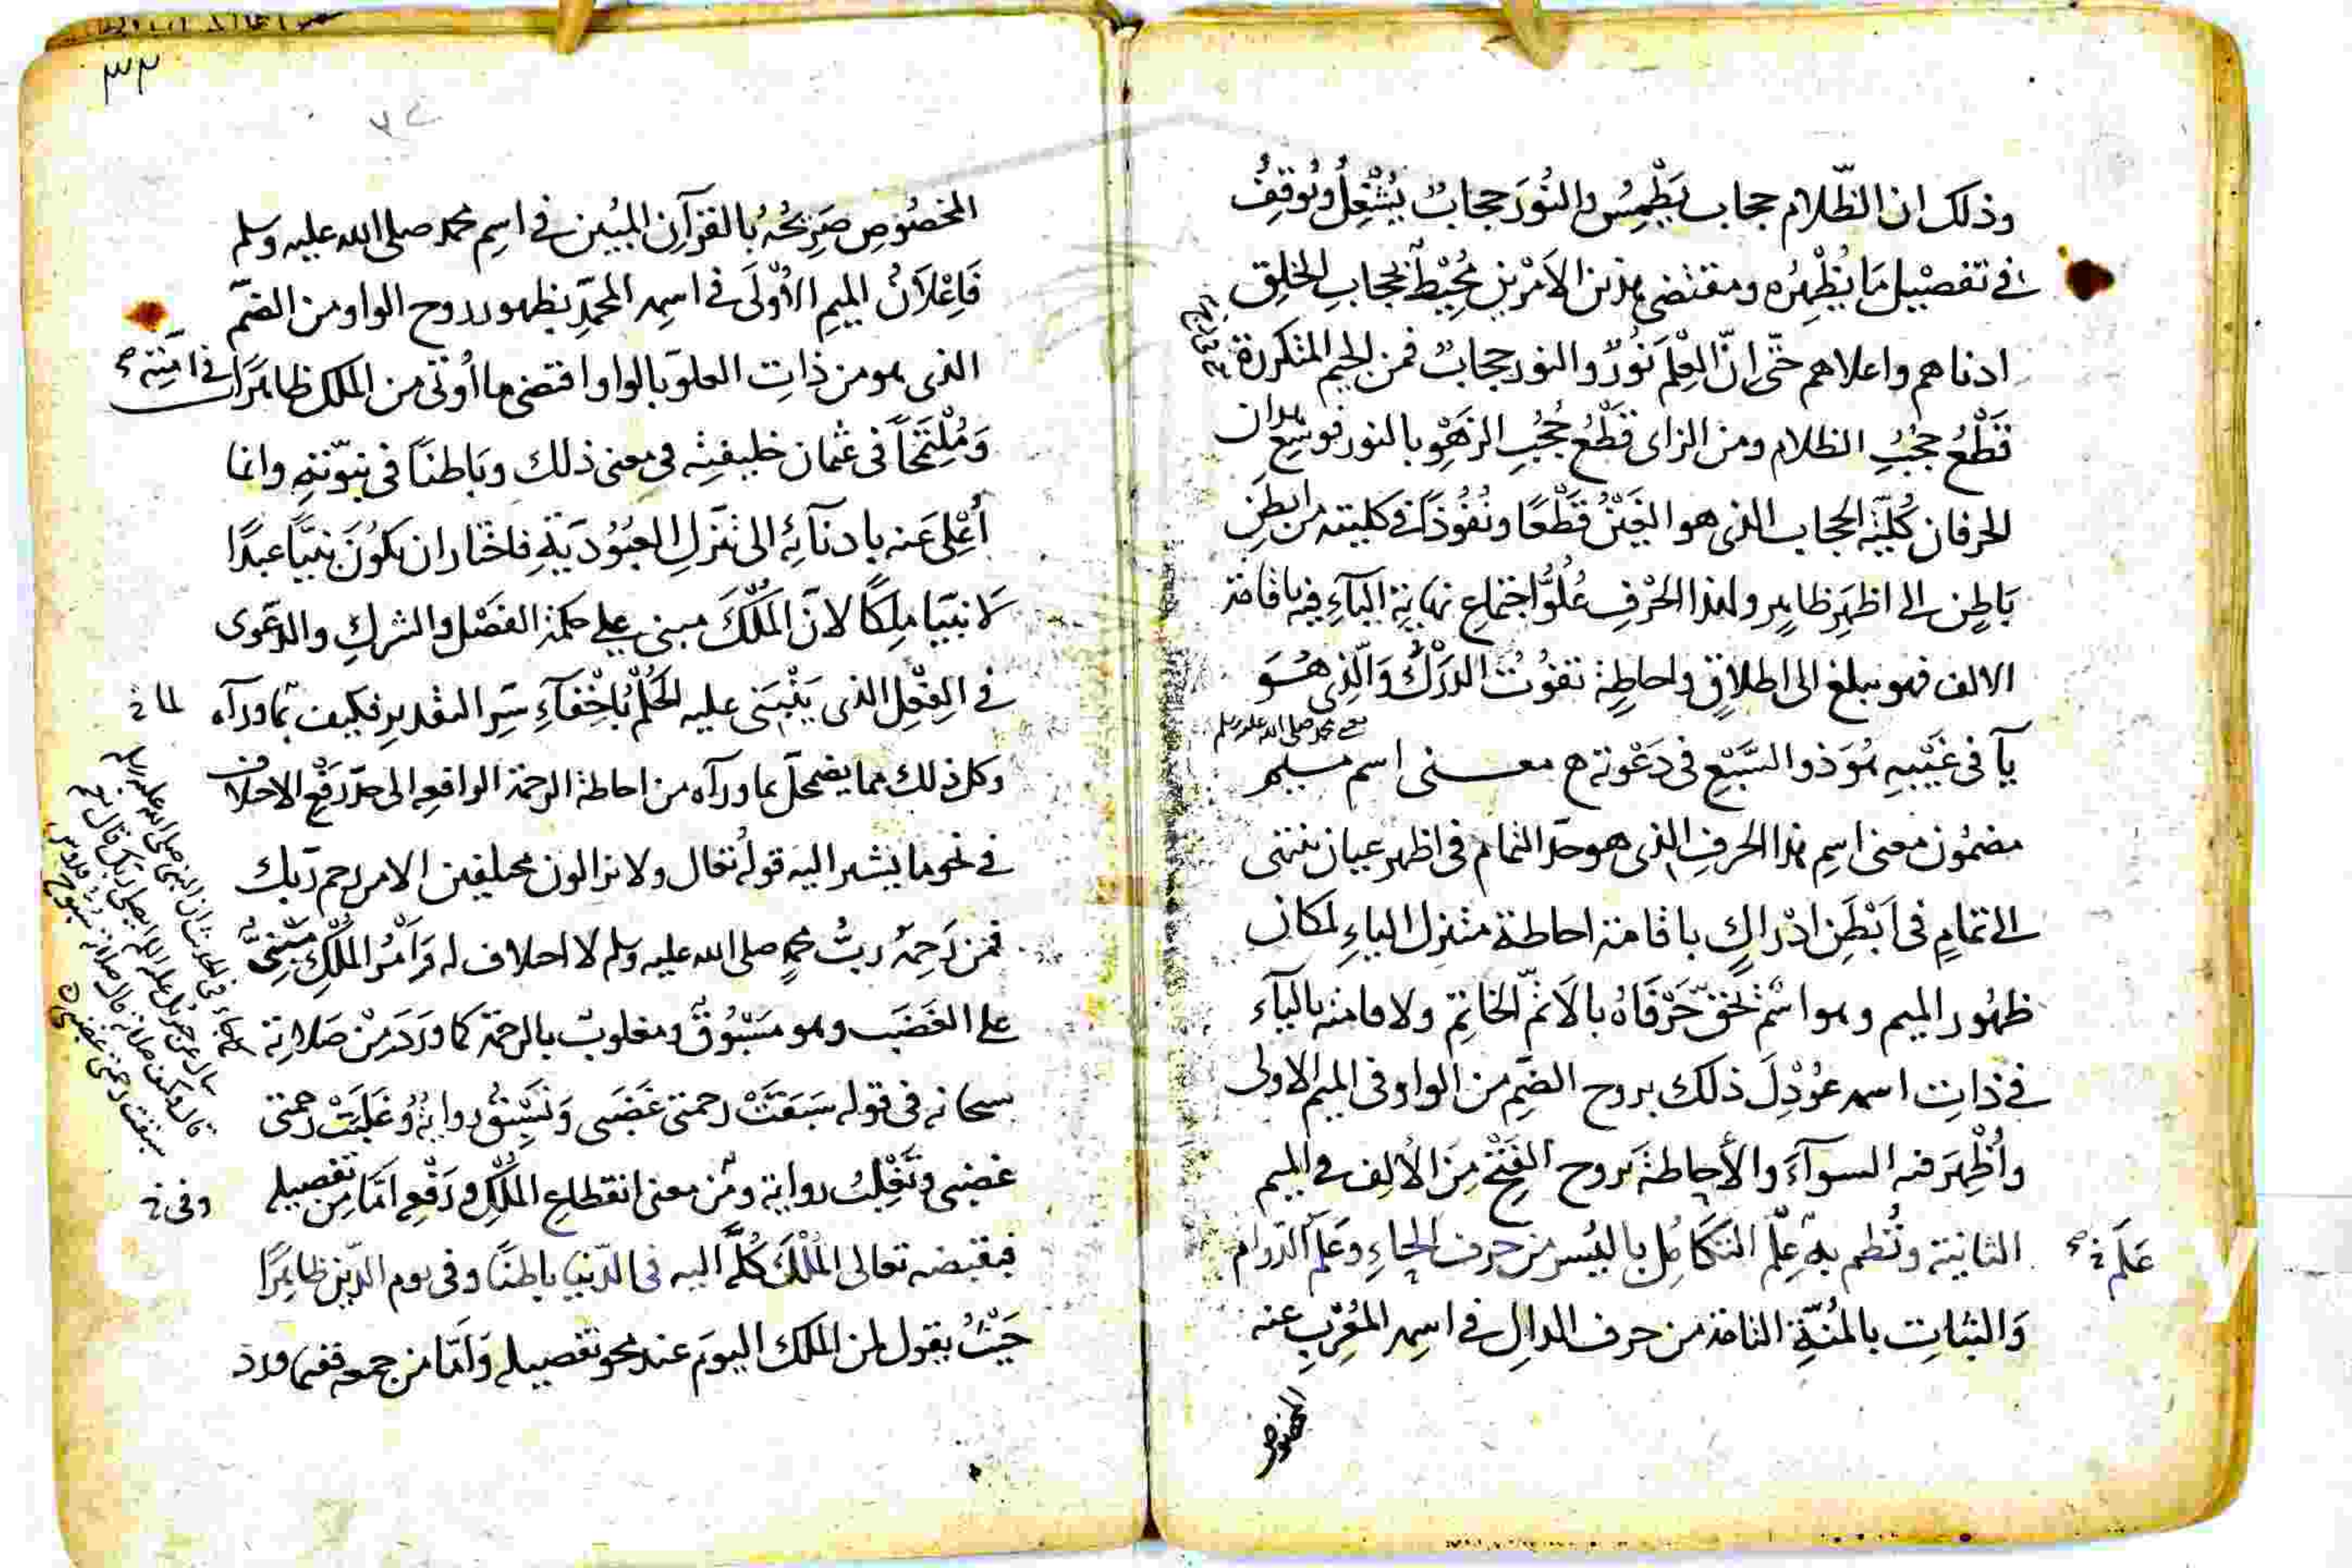 وذلك ان الظّلام حجاب يَطْمِسُ والنُورَ حجابٌ يُشْغِلُ ويُوقِفُ
في تفصيْل مَا يُظْهِرُه ومقتضى هذين الاَمْرين مُحِيْطٌ بحجابِ الخلق
ادناهم واعلاهم حتّى انّ العِلْمَ نُورٌ والنور حجابٌ فمن الجيم المتكررة
قَطْعُ حجُبُ الظلام ومن الزاى قَطْعُ حُجُبِ الزَهْوِ بالنور فوسّع هذان
الحرفان كُلّيّة الحجاب الذى هو الغَيْنُ قَطْعًا ونُفُوذًا في كليته من ابطَنِ
بَاطِنٍ الى اظهَرِ ظاهرٍ ولهذا الحَرْفِ عُلُوُّ اجتماعِ نهايةِ اليآءِ فيه باقامة
الالف فهو يبلغ الى اطلاقٍ واحاطةٍ تفوْتُ الدَرْكَ وَالّذِى هُوَ
يآ فى غَيْبِهِ هُوَ ذو السَّبْعِ فى دَعْوته ح معنى اسم ميم
يعنى محمد صلى الله عليه وسلم
مضمُون معنى اسِم هذا الحرفِ الذى هو حدّ التمام فى اظهر عيان ننتهى
الى تمامٍ فى اَبْطَنِ ادْراكٍ باقامة احاطة مثنزل الياءِ لمكان
ظهُور الميم وهو اسْمٌ لحقّ حَرْفَاهُ بالاَتمّ الخاتم ولاقامته باليآء
في ذاتِ اسمه عُوْدِلَ ذلك بروح الضّم من الواو فى الميم الاولى
واُظْهِرَ فيه السوآءَ والأحاطةَ بروح الفتْحِ مِنَ الألف في الميم
الثانية ونُظم به عِلْم التَكَامُل باليُسر من حرف الحاءِ وعَلَم الدّوام
عَلَم خ صح
وَالثباتِ بالمُنّةِ التامّة من حرف الدالِ في اسِمه المُعْرِبِ عنه
المخصوص
٣٣
المخصُوصِ صَرِيحُهُ بالقرآن المبُين في اسِم محمد صلى الله عليه وسلم
فَاِعْلاَنُ الميمِ الأوْلَى في اسمِه المحمّدِ بظهور روح الواو من الضمّ
الذى هو من ذاتِ العلوّ بالواو اقتضى ما اُوتى من الملك ظاهرًا في اُمّتِه
وَمُلْتَحًا فى عثمان خليفتِه في معنى ذلك وبَاطنًا فى نبوّته وانما
اُعْلِىَ عنه بادنآئِه الى تَنَزّلِ العبُوْديَةِ فاختار ان يكوُنَ نبيّا عبدًا
لا نبيّا مِلكًا لانّ المُلْكَ مبنى على حكمة الفصْل والشركِ والدعوى
في الفِعْلِ الذى يَنْبَنى عليه الحُكْمُ باخْفَآءِ سِرّ التقديرِ فكيف بما ورآه
لما خ
وكل ذلك مما يضمحلّ بما ورآه من احاطة الرحمة الرافعِه الى حدّ رَفْعِ الاختلاف
في نحو ما يشير اليه قولُه تعالى ولا يزالون مختلفين الا من رحم ربّك
فمن رَحِمَهُ ربُّ محمّدٍ صلى الله عليه وسلم لا اختلاف له وَاَمْرُ المُلْكِ مَبْنِىٌّ
على الغَضَبِ وهو مَسْبُوقٌ ومغلوبٌ بالرحمة كما وَرَدَ مِنْ صَلاَتِه
سبحانه فى قوله سَبَقتْ رحمتى غَضَبى وَتَسْبِقُ روايةٌ وغَلَبَتْ رحمتى
غضبى وتَغْلِبُ رواية ومن معنى انقطاعِ المُلْكِ ورَفْعِهِ امّا من تفصيله
وفى خ
فبقبضه تعالى المُلْكَ كُلَّه اليه فى الدّنيا باطنًا وفى يوم الدّينِ ظاهِرًا
حَيْثُ يقول لمن الملك اليومَ عند محو تفصيله وَاَمّا من جمعه ففيما ورد
جاء فى الحديث ان النبى صلى الله عليه وسلم
سال عن جبريل عليه السلام ايصلى ربك قال نعم
قال وكيف صلاته قال صلاته سبوح قدوس
سبقت رحمتى غضبى